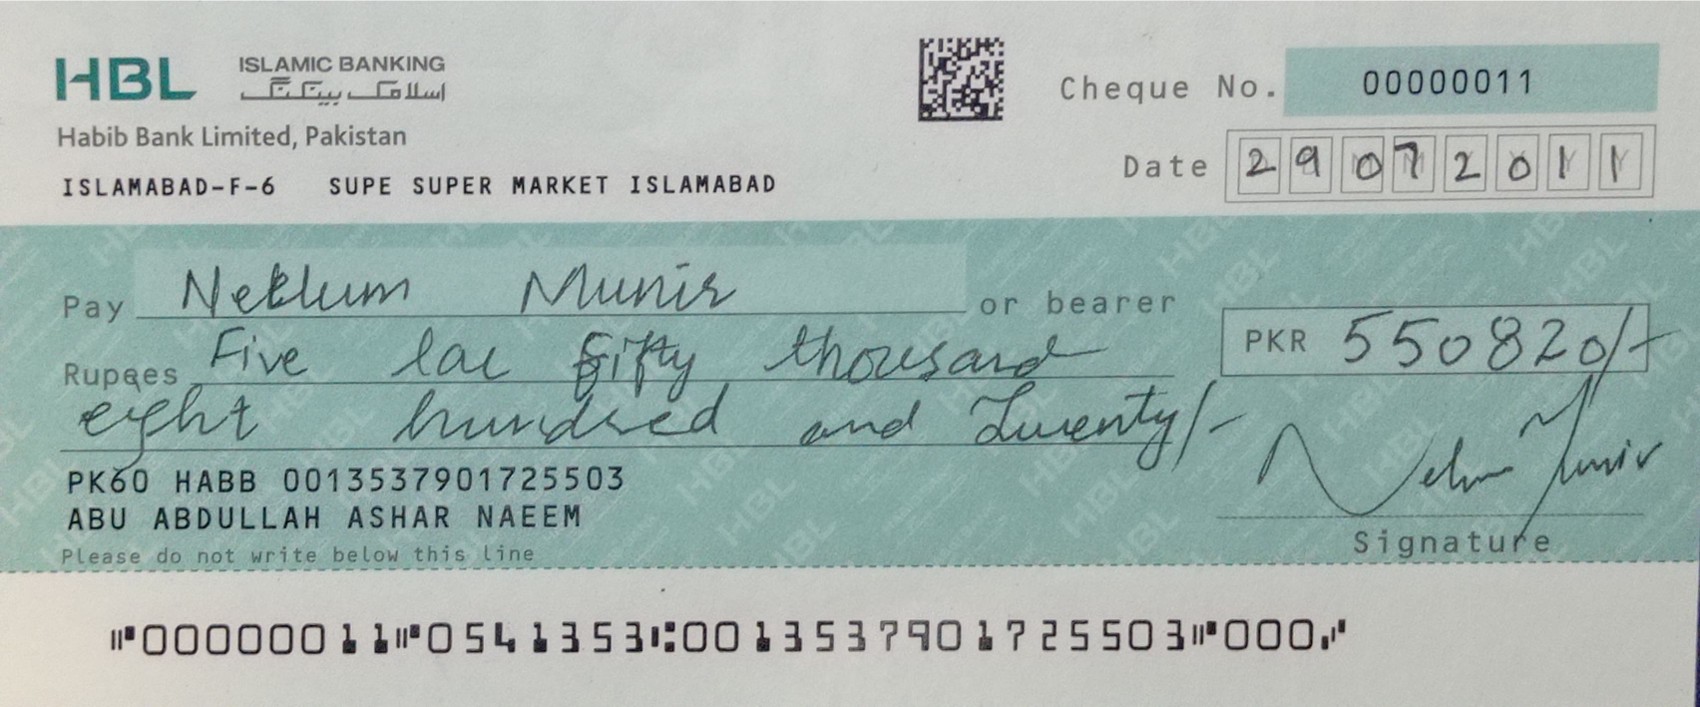 HBL ISLAMIC BANKING
اسلامک بینکنگ
Habib Bank Limited, Pakistan
ISLAMABAD-F-6 SUPE SUPER MARKET ISLAMABAD
Cheque No. 00000011
Date 29072011
Pay Neelum Munir or bearer
Rupees Five lac fifty thousand
eight hundred and Twenty/-
PKR 550820/-
PK60 HABB 0013537901725503
ABU ABDULLAH ASHAR NAEEM
Please do not write below this line
Signature
⑈00000011⑈0541353⑆0013537901725503⑈000⑇